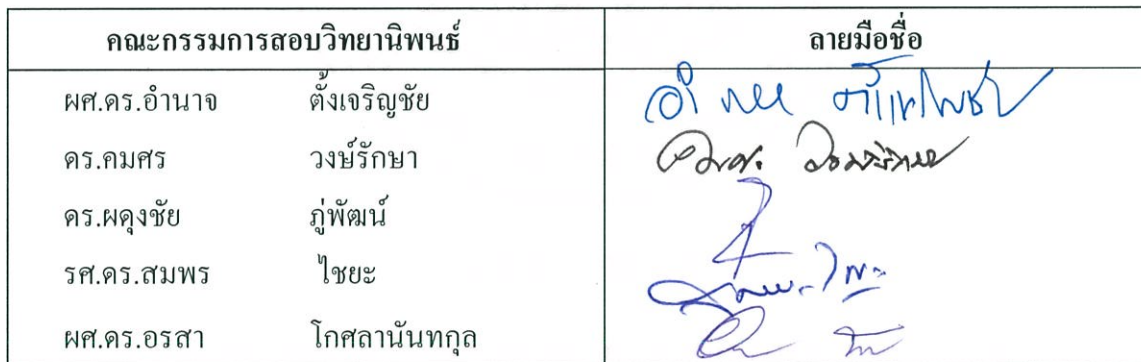 คณะกรรมการสอบวิทยานิพนธ์ ลายมือชื่อ
ผศ.ดร.อำนาจ ตั้งเจริญชัย
ดร.คมศร วงษ์รักษา
ดร.ผดุงชัย ภู่พัฒน์
รศ.ดร.สมพร ไชยะ
ผศ.ดร.อรสา โกศลานันทกุล